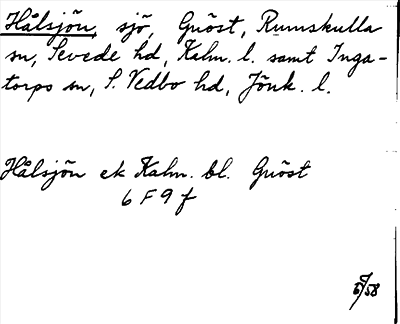 Hålsjön, sjö, Gnöst, Rumskulla
sn, Sevede hd, Kalm. l. samt Inga-
torps sn, S. Vedbo hd, Jönk. l.
Hålsjön ek Kalm. bl. Gnöst
6 F 9 f
58